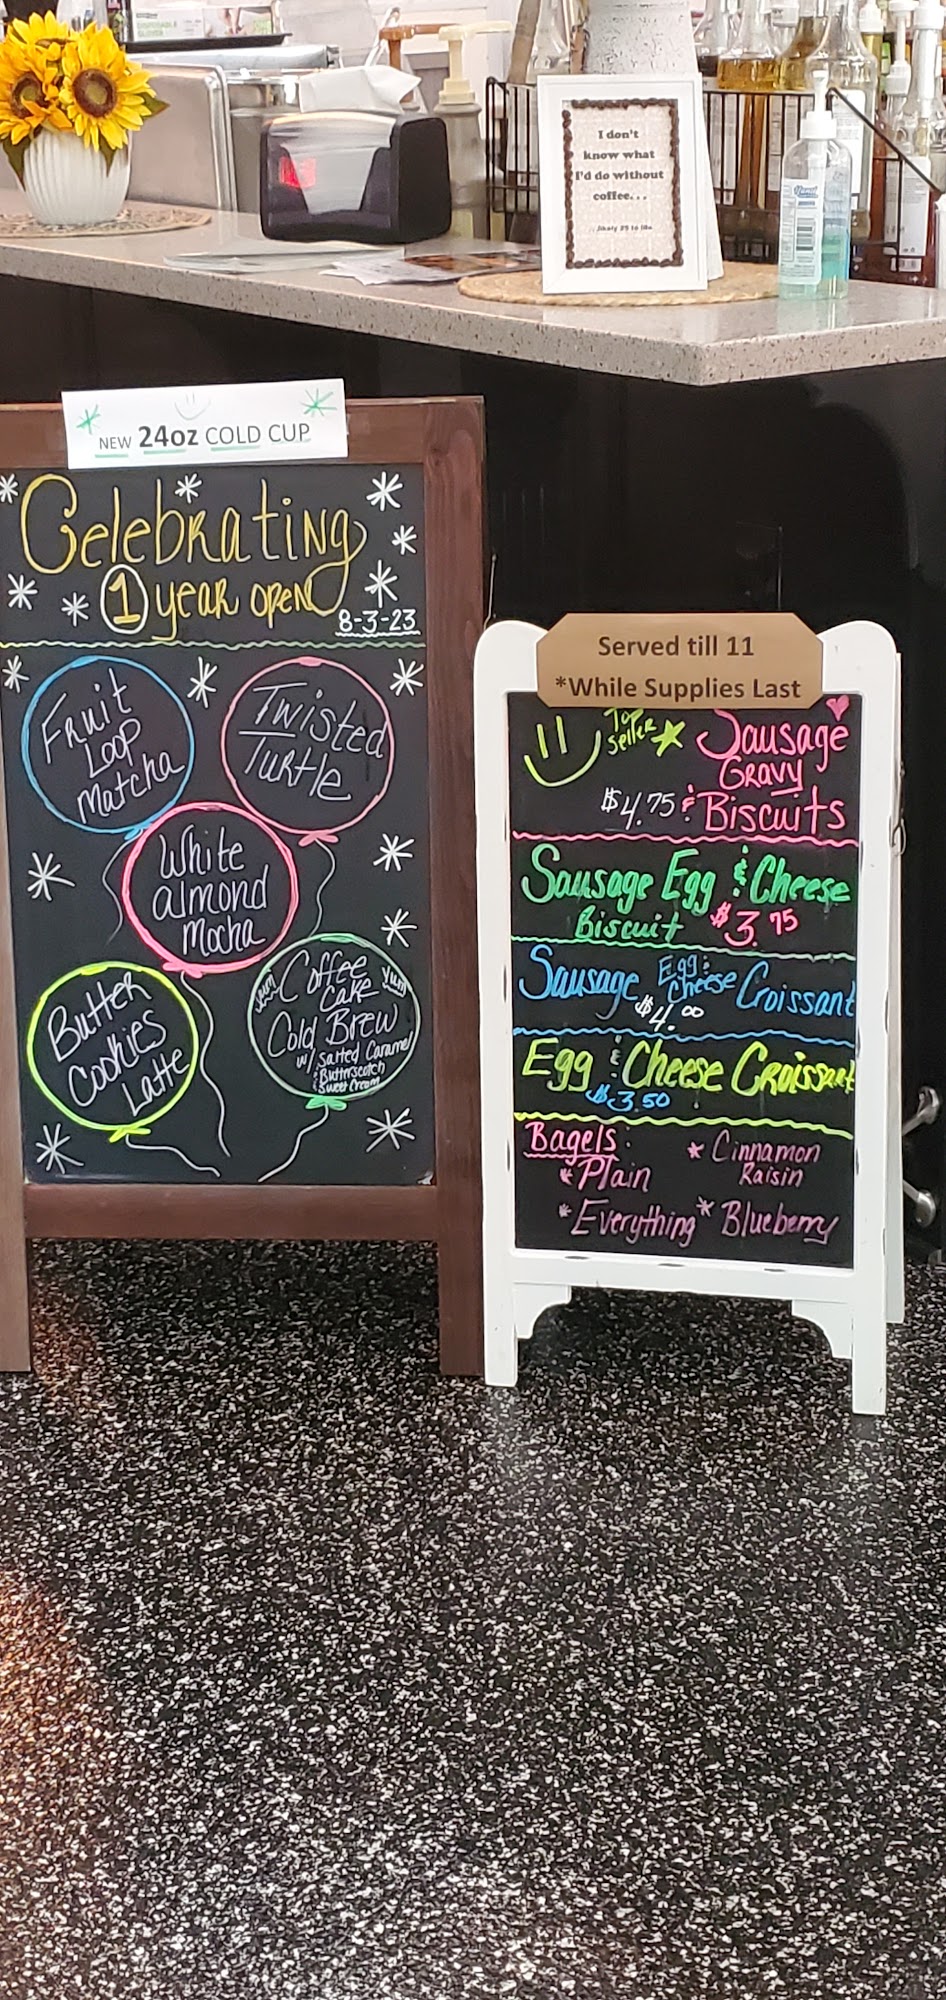 I don't
know what
I'd do without
coffee...
...likely 25 to life.
NEW 24oz COLD CUP
Celebrating
1 year open
8-3-23
Fruit
Loop
Matcha
Twisted
Turtle
White
almond
Mocha
Butter
Cookies
Latte
yum Coffee yum
Cake
Cold Brew
w/ salted Caramel
& Butterscotch
Sweet Cream
Served till 11
*While Supplies Last
Top
Seller
Sausage
Gravy
$4.75 & Biscuits
Sausage Egg & Cheese
Biscuit $3.75
Sausage Egg & Cheese Croissant
$4.00
Egg & Cheese Croissant
$3.50
Bagels:
*Plain
* Cinnamon
Raisin
*Everything
* Blueberry